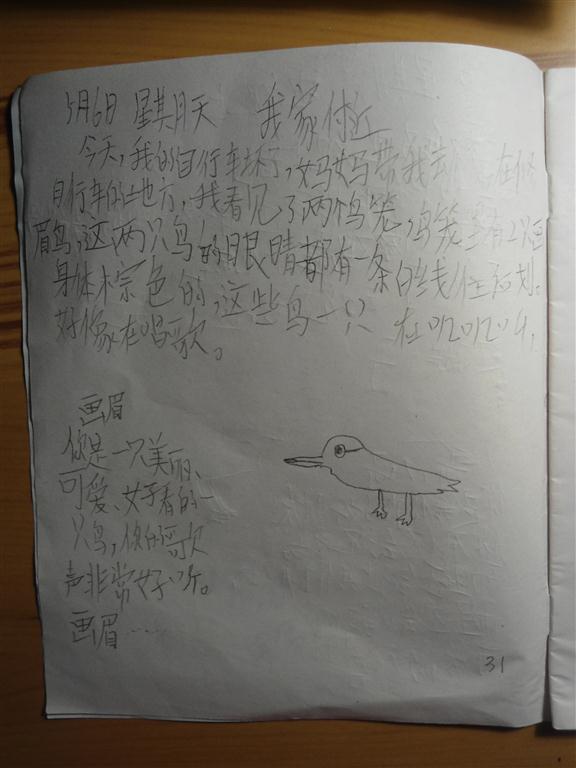 5月6日 星期天 我家附近
今天,我的自行车坏了,妈妈带我去修,在修
自行车的地方,我看见了两个鸟笼,鸟笼里有2只画
眉鸟,这两只鸟的眼睛都有一条白线往后划。
身体棕色的,这些鸟一只 在叽叽叫,
好像在唱歌。
画眉
你是一只美丽、
可爱、好看的一
只鸟,你的歌
声非常好听。
画眉……
31